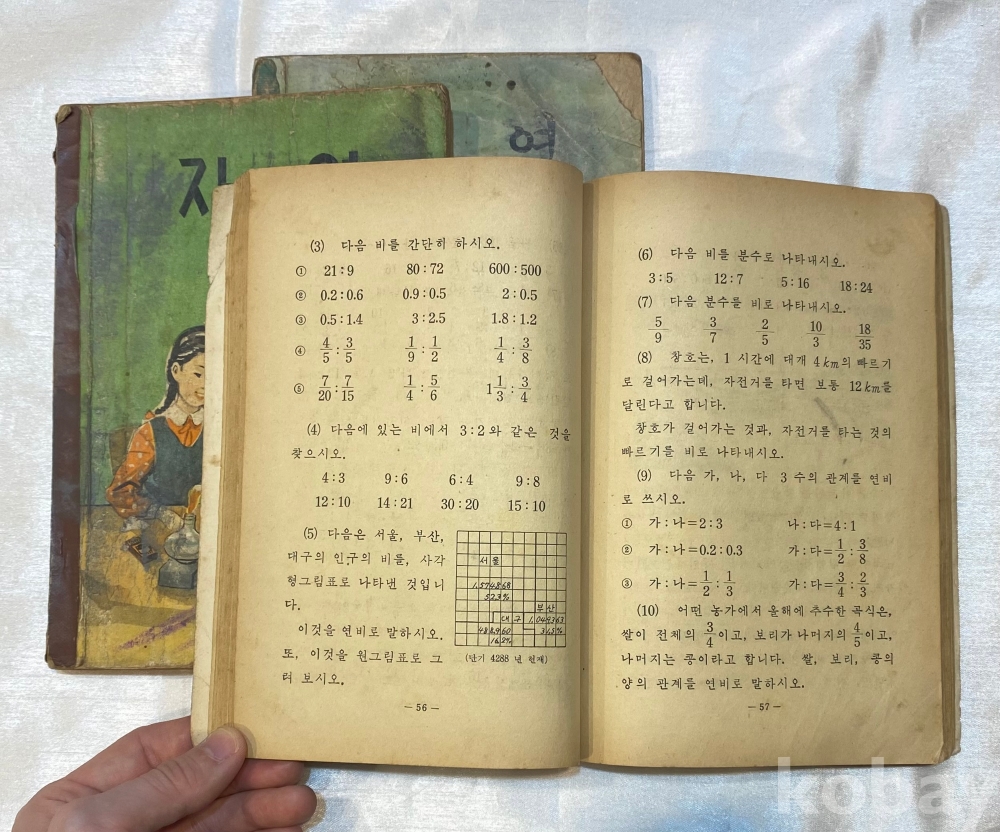 자 연
연
(3) 다음 비를 간단히 하시오.
① 21:9 80:72 600:500
② 0.2:0.6 0.9:0.5 2:0.5
③ 0.5:1.4 3:2.5 1.8:1.2
④ 4/5:3/5 1/9:1/2 1/4:3/8
⑤ 7/20:7/15 1/4:5/6 1 1/3:3/4
(4) 다음에 있는 비에서 3:2와 같은 것을
찾으시오.
4:3 9:6 6:4 9:8
12:10 14:21 30:20 15:10
(5) 다음은 서울, 부산,
대구의 인구의 비를, 사각
형그림표로 나타낸 것입니
다.
이것을 연비로 말하시오.
또, 이것을 원그림표로 그
려 보시오.
서울
1,574,868
52.3%
부산
1,049,363
31.5%
대구
488,960
16.2%
(단기 4288 년 현재)
— 56 —
(6) 다음 비를 분수로 나타내시오.
3:5 12:7 5:16 18:24
(7) 다음 분수를 비로 나타내시오.
5/9 3/7 2/5 10/3 18/35
(8) 창호는, 1 시간에 대개 4km의 빠르기
로 걸어가는데, 자전거를 타면 보통 12km를
달린다고 합니다.
창호가 걸어가는 것과, 자전거를 타는 것의
빠르기를 비로 나타내시오.
(9) 다음 가, 나, 다 3 수의 관계를 연비
로 쓰시오.
① 가:나=2:3 나:다=4:1
② 가:나=0.2:0.3 가:다=1/2:3/8
③ 가:나=1/2:1/3 가:다=3/4:2/3
(10) 어떤 농가에서 올해에 추수한 곡식은,
쌀이 전체의 3/4이고, 보리가 나머지의 4/5이고,
나머지는 콩이라고 합니다. 쌀, 보리, 콩의
양의 관계를 연비로 말하시오.
— 57 —
kobay